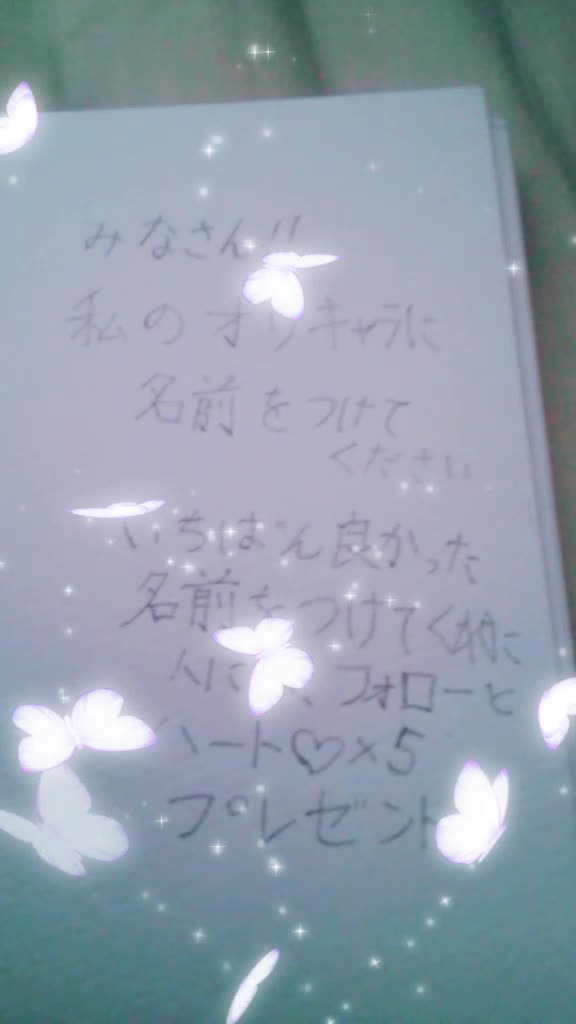 みなさん!!
私のオリキャラに
名前をつけて
ください
いちばん良かった
名前をつけてくれた
人に、フォローと
ハート♡×5
プレゼント